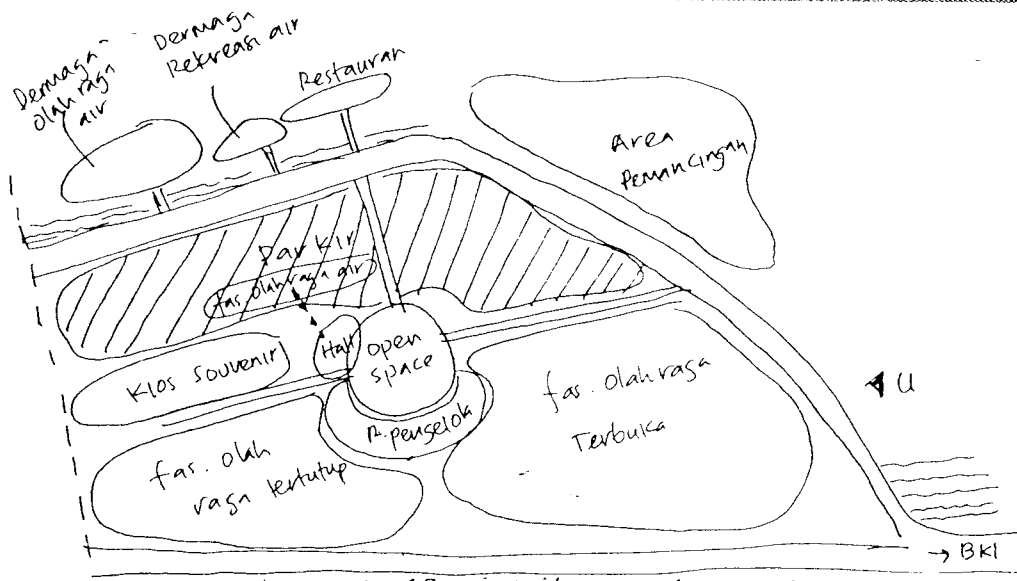 Dermaga
olahraga
air
Dermaga
Rekreasi air
Restauran
Area
Pemancingan
Parkir
fas. Olahraga air
Kios Souvenir
Hall
open
space
R. pengelola
fas. Olahraga
Terbuka
fas. Olah
raga tertutup
U
→ BKT